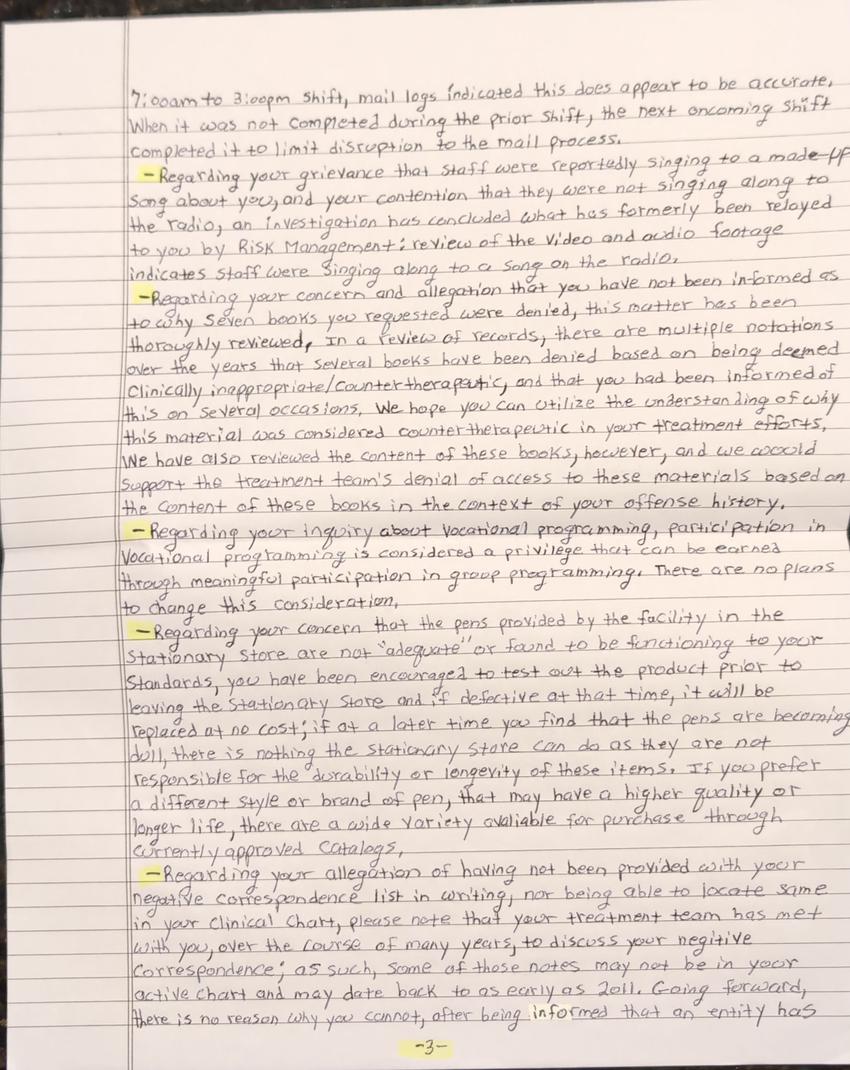 7:00am to 3:00pm shift, mail logs indicated this does appear to be accurate.
When it was not completed during the prior shift, the next oncoming shift
completed it to limit disruption to the mail process.
-Regarding your grievance that staff were reportedly singing to a made-up
song about you, and your contention that they were not singing along to
the radio, an investigation has concluded what has formerly been relayed
to you by Risk Management; review of the video and audio footage
indicates staff were singing along to a song on the radio.
-Regarding your concern and allegation that you have not been informed as
to why seven books you requested were denied, this matter has been
thoroughly reviewed. In a review of records, there are multiple notations
over the years that several books have been denied based on being deemed
clinically inappropriate/countertherapeutic, and that you had been informed of
this on several occasions. We hope you can utilize the understanding of why
this material was considered countertherapeutic in your treatment efforts.
We have also reviewed the content of these books, however, and we would
support the treatment team's denial of access to these materials based on
the content of these books in the context of your offense history.
-Regarding your inquiry about vocational programming, participation in
vocational programming is considered a privilege that can be earned
through meaningful participation in group programming. There are no plans
to change this consideration.
-Regarding your concern that the pens provided by the facility in the
stationary store are not "adequate" or found to be functioning to your
standards, you have been encouraged to test out the product prior to
leaving the stationary store and if defective at that time, it will be
replaced at no cost; if at a later time you find that the pens are becoming
dull, there is nothing the stationary store can do as they are not
responsible for the durability or longevity of these items. If you prefer
a different style or brand of pen, that may have a higher quality or
longer life, there are a wide variety avaliable for purchase through
currently approved catalogs.
-Regarding your allegation of having not been provided with your
negative correspondence list in writing, nor being able to locate same
in your clinical chart, please note that your treatment team has met
with you, over the course of many years, to discuss your negitive
correspondence; as such, some of those notes may not be in your
active chart and may date back to as early as 2011. Going forward,
there is no reason why you cannot, after being informed that an entity has
-3-